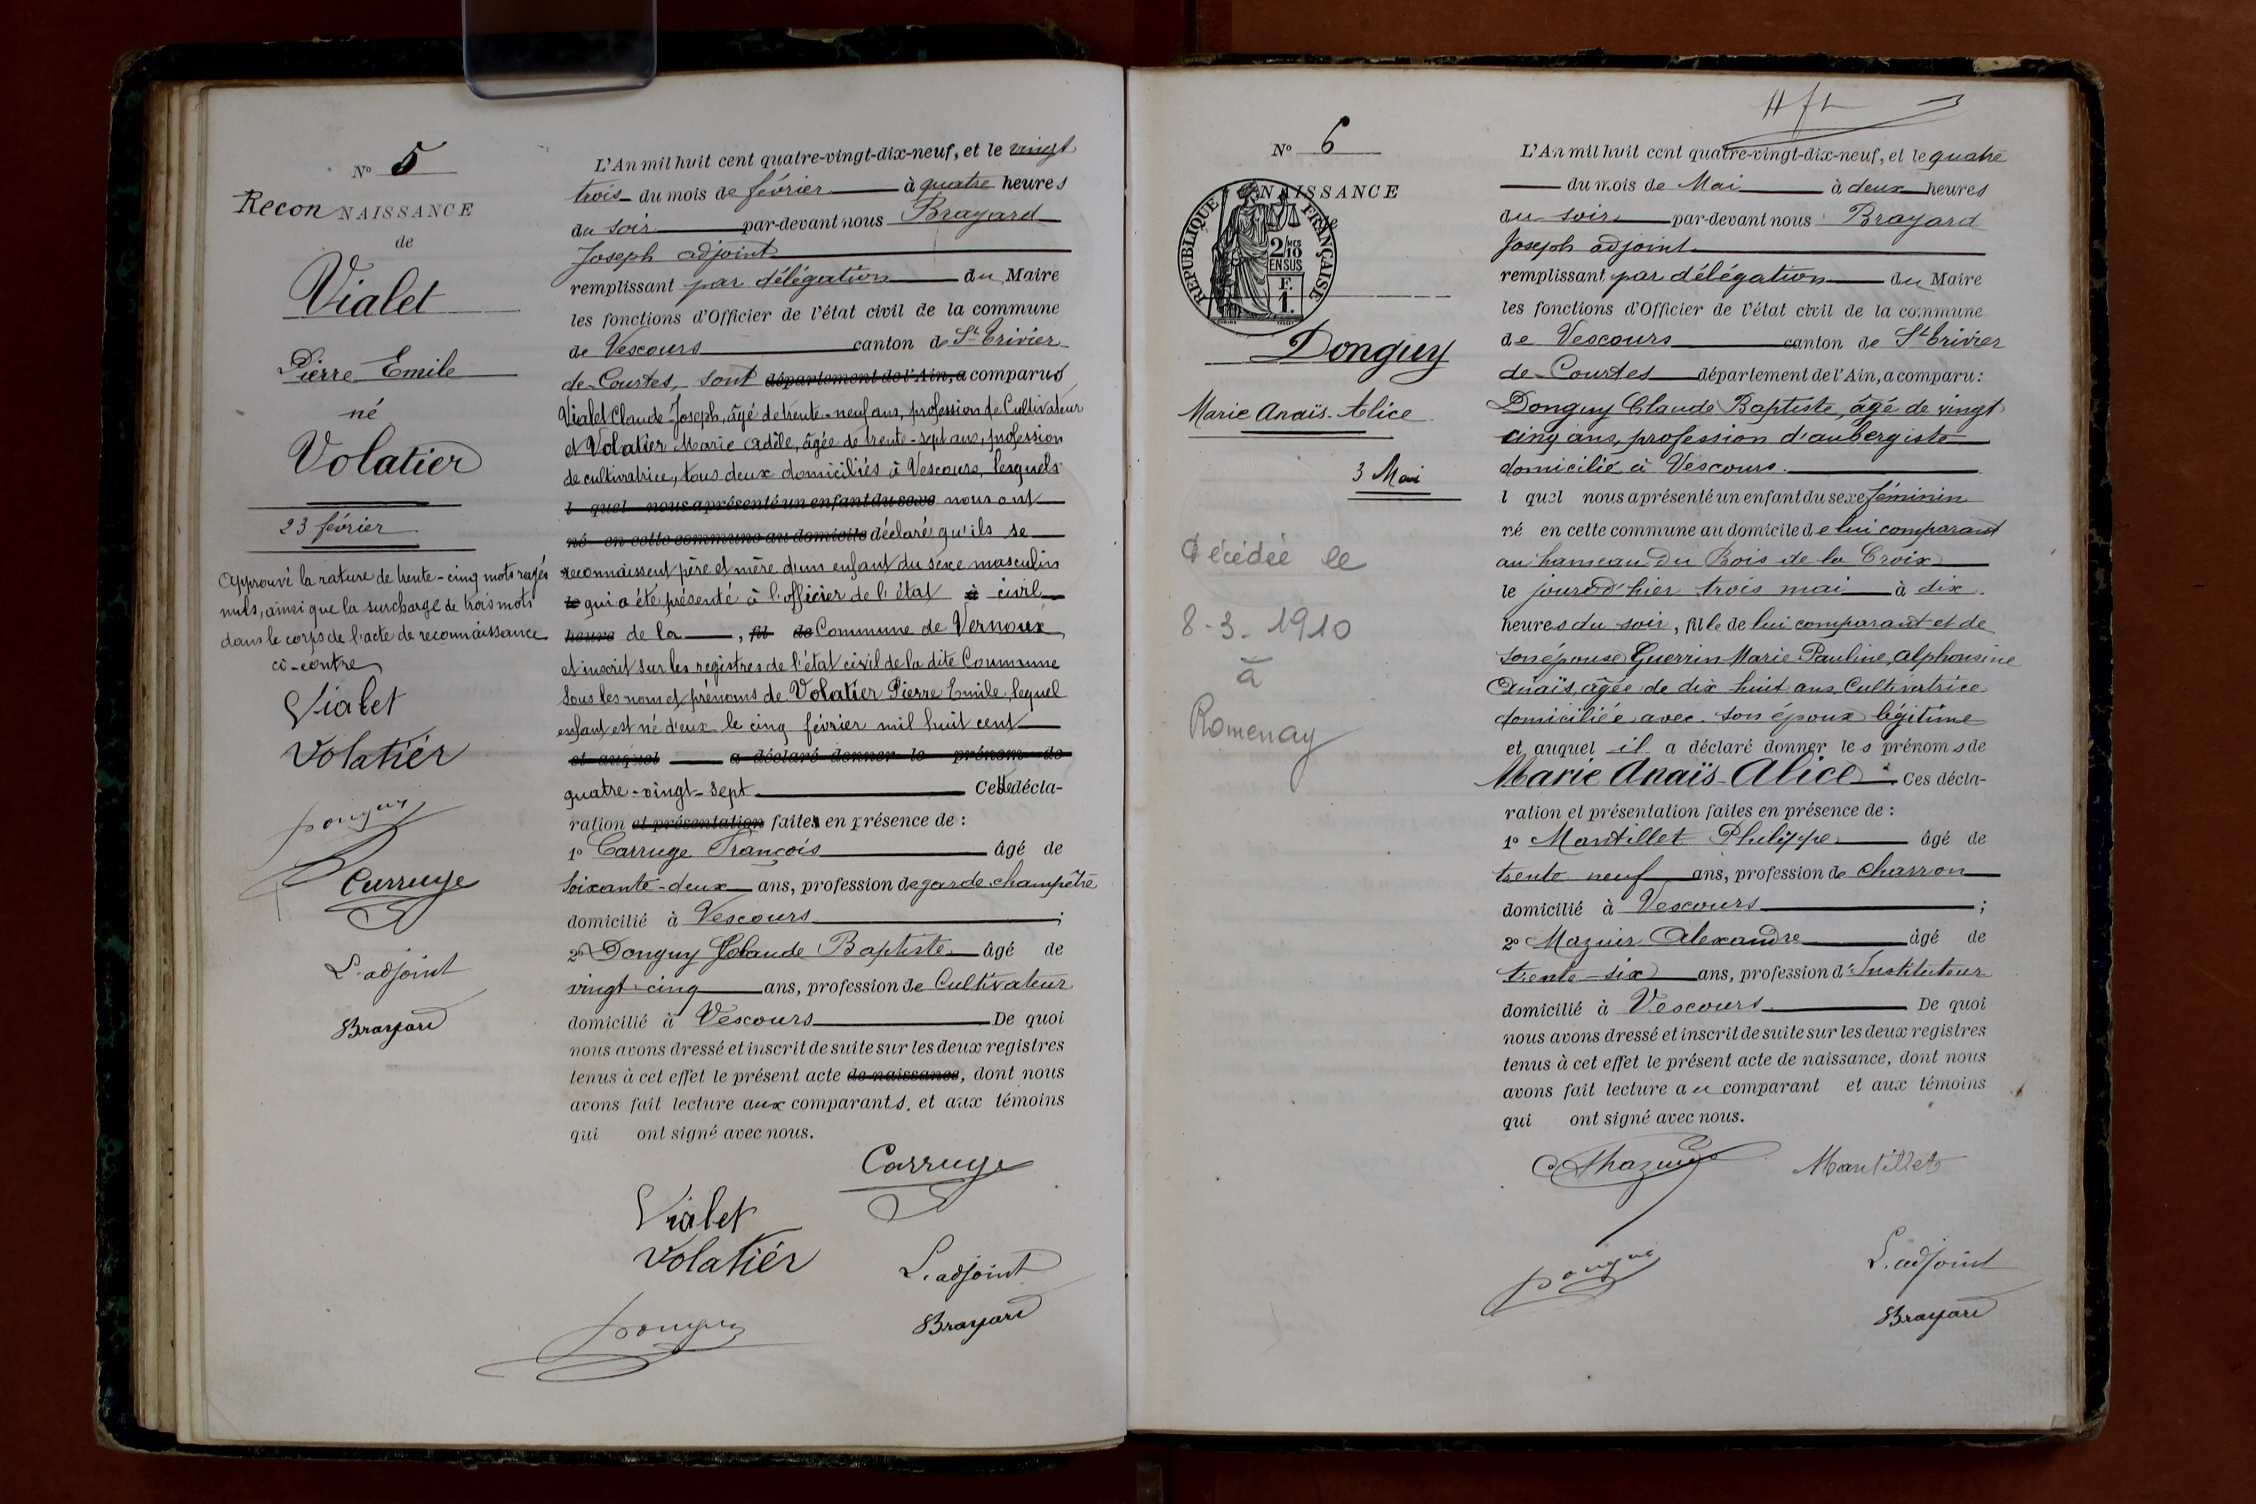 N° 5
Reconnaissance
de
Vialet
Pierre Emile
né
Volatier
23 février
Approuvé la rature de trente-cinq mots rayés
nuls, ainsi que la surcharge de trois mots
dans le corps de l'acte de reconnaissance
ci-contre
Vialet
Volatiér
Donguy
Carruge
L'adjoint
Brayard
L'An mil huit cent quatre-vingt-dix-neuf, et le vingt
trois du mois de février à quatre heures
du soir par-devant nous Brayard
Joseph adjoint
remplissant par délégation du Maire
les fonctions d'Officier de l'état civil de la commune
de Vescours canton de St Trivier
de Courtes, sont département de l'Ain, a comparus
Vialet Claude Joseph, âgé de trente-neuf ans, profession de Cultivateur
et Volatier Marie Adèle, âgée de trente-sept ans, profession
de cultivatrice, tous deux domiciliés à Vescours, lesquels
l quel nous a présenté un enfant du sexe nous ont
né en cette commune au domicile déclaré qu'ils se
reconnaissent père et mère d'un enfant du sexe masculin
le qui a été présenté à l'officier de l'état à civil
heure de la , fil de Commune de Vernoux
et inscrit sur les registres de l'état civil de la dite Commune
sous les nom et prénoms de Volatier Pierre Emile, lequel
enfant est né d'eux le cinq février mil huit cent
et auquel a déclaré donner le prénom de
quatre-vingt-sept Cette décla-
ration et présentation faite en présence de :
1° Carruge François âgé de
soixante-deux ans, profession de garde champêtre
domicilié à Vescours ;
2° Donguy Claude Baptiste âgé de
vingt-cinq ans, profession de Cultivateur
domicilié à Vescours De quoi
nous avons dressé et inscrit de suite sur les deux registres
tenus à cet effet le présent acte de naissance, dont nous
avons fait lecture aux comparants, et aux témoins
qui ont signé avec nous.
Carruge
Vialet
Volatiér
L'adjoint
Donguy
Brayard
N° 6
NAISSANCE
de
RÉPUBLIQUE FRANÇAISE
2/10 MES
EN SUS
F.
1.
Donguy
Marie Anaïs Alice
3 Mai
Décédée le
8-3-1910
à
Romenay
L'An mil huit cent quatre-vingt-dix-neuf, et le quatre
du mois de Mai à deux heures
du soir par-devant nous Brayard
Joseph adjoint
remplissant par délégation du Maire
les fonctions d'Officier de l'état civil de la commune
de Vescours canton de St Trivier
de Courtes département de l'Ain, a comparu :
Donguy Claude Baptiste, âgé de vingt
cinq ans, profession d'aubergiste
domicilié à Vescours
l quel nous a présenté un enfant du sexe féminin
né en cette commune au domicile de lui comparant
au hameau du Bois de la Croix
le jour d'hier trois mai à dix
heures du soir, fille de lui comparant et de
son épouse Guerrin Marie Pauline, Alphonsine
Anaïs, âgée de dix huit ans Cultivatrice
domiciliée avec son époux légitime
et auquel il a déclaré donner les prénoms de
Marie Anaïs Alice Ces décla-
ration et présentation faites en présence de :
1° Mantillet Philippe âgé de
trente neuf ans, profession de charron
domicilié à Vescours ;
2° Mazuir Alexandre âgé de
trente-six ans, profession d'Instituteur
domicilié à Vescours De quoi
nous avons dressé et inscrit de suite sur les deux registres
tenus à cet effet le présent acte de naissance, dont nous
avons fait lecture au comparant et aux témoins
qui ont signé avec nous.
Mantillet
Donguy
L'adjoint
Brayard